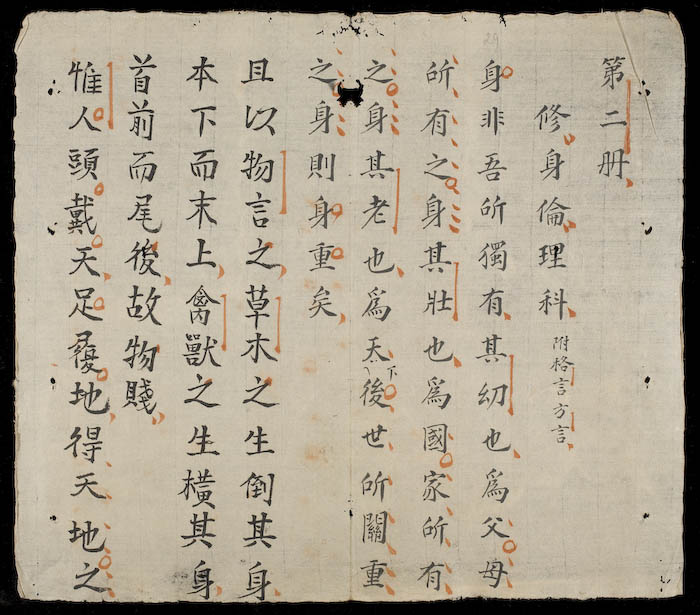 第二册
修身倫理科 附格言方言
身非吾所獨有其幼也為父母
所有之身其壯也為國家所有
之身其老也為天下後世所關重
之身則身重矣
且以物言之草木之生倒其身
本下而末上禽獸之生橫其身
首前而尾後故物賤
惟人頭戴天足履地得天地之